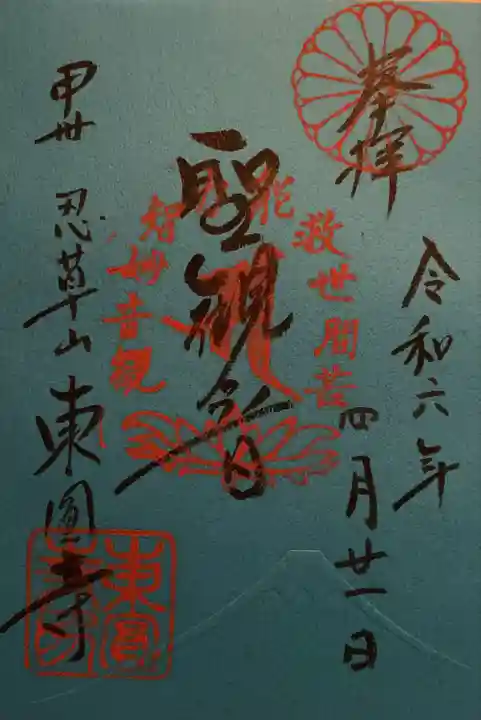 奉拝
令和六年
四月廿一日
聖観音
甲卋 忍草山 東圓寺
能救世間苦
観音妙智
東圓寺印